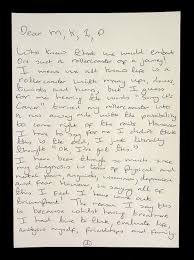 Dear, M, X, I, D
Who knew that we would embark
on such a rollercoaster of a journey!
I mean we all know life is a
rollercoaster with many ups, downs,
twists and turns, but I guess
for me hearing the words "sorry it's
Cancer" turned my rollercoaster into
a runaway ride with the possibility
to come right off the rails. However
I have to say for me I didn't think
this is the end, I literally
thought "Ok I've got this."
I have been through so much since
my diagnosis in terms of physical and
mental pain, anguish, sadness,
and fear however, in saying all of
this I feel I have come out
triumphant! The reason I say this
is because whilst having treatment
I have had time to evaluate life,
analyse myself, friendships and family
1